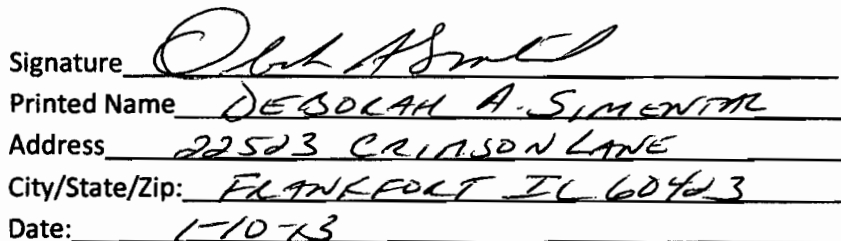 Signature
Printed Name DEBORAH A. SIMENTAL
Address 22523 CRIMSON LANE
City/State/Zip: FRANKFORT IL 60423
Date: 1-10-13